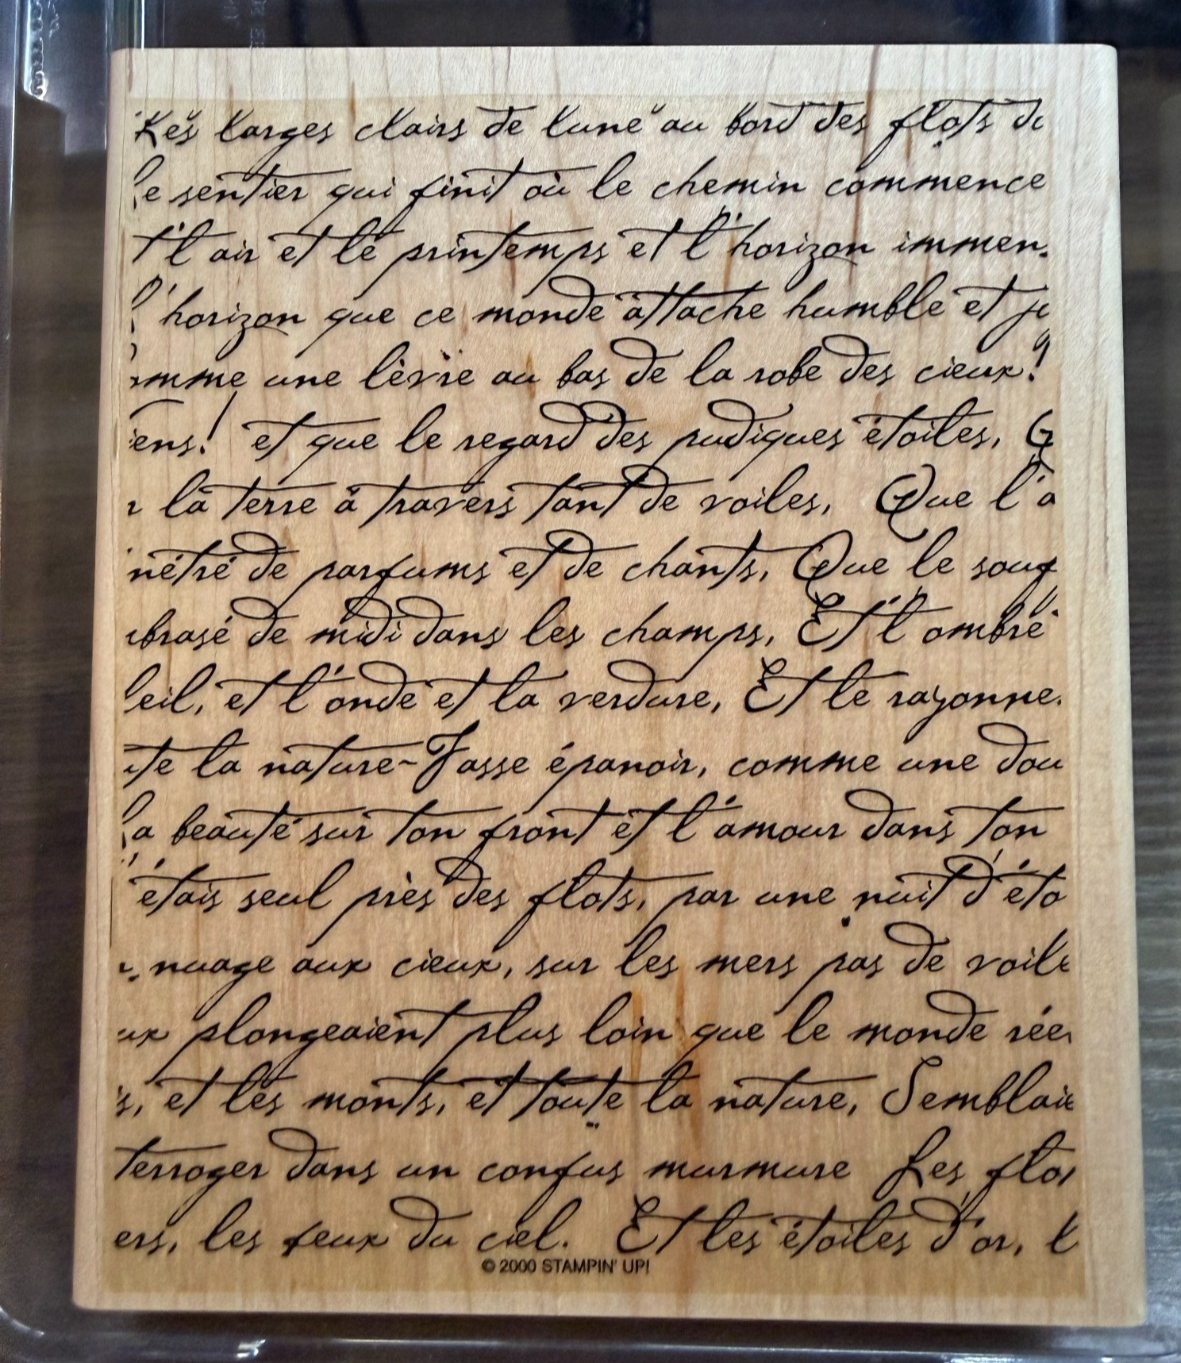 Les larges clairs de lune au bord des flots d
le sentier qui finit où le chemin commence
t l'air et le printemps et l'horizon immen
l'horizon que ce monde attache humble et j
mme une lèvre au bas de la robe des cieux!
ens! et que le regard des pudiques étoiles, 
la terre à travers tant de voiles, Que l'a
nétré de parfums et de chants, Que le souf
brasé de midi dans les champs, Et l'ombre
leil, et l'onde et la verdure, Et le rayonne
te la nature-Fasse épanoir, comme une dou
la beauté sur ton front et l'amour dans ton
'étais seul près des flots, par une nuit d'éto
nuage aux cieux, sur les mers pas de voile
ux plongeaient plus loin que le monde rée
s, et les monts, et toute la nature, Semblaie
terroger dans un confus murmure Les flo
ers, les feux du ciel. Et les étoiles d'or, l
© 2000 STAMPIN' UP!